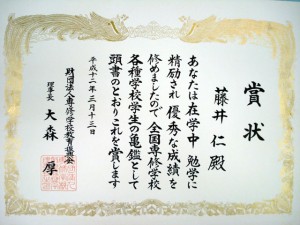 賞状
藤井 仁 殿
あなたは在学中 勉学に
精励され 優秀な成績を
修めましたので 全国専修学校
各種学校学生の亀鑑として
頭書のとおりこれを賞します
平成十二年三月十三日
財団法人専修学校教育振興会
理事長 大森 厚